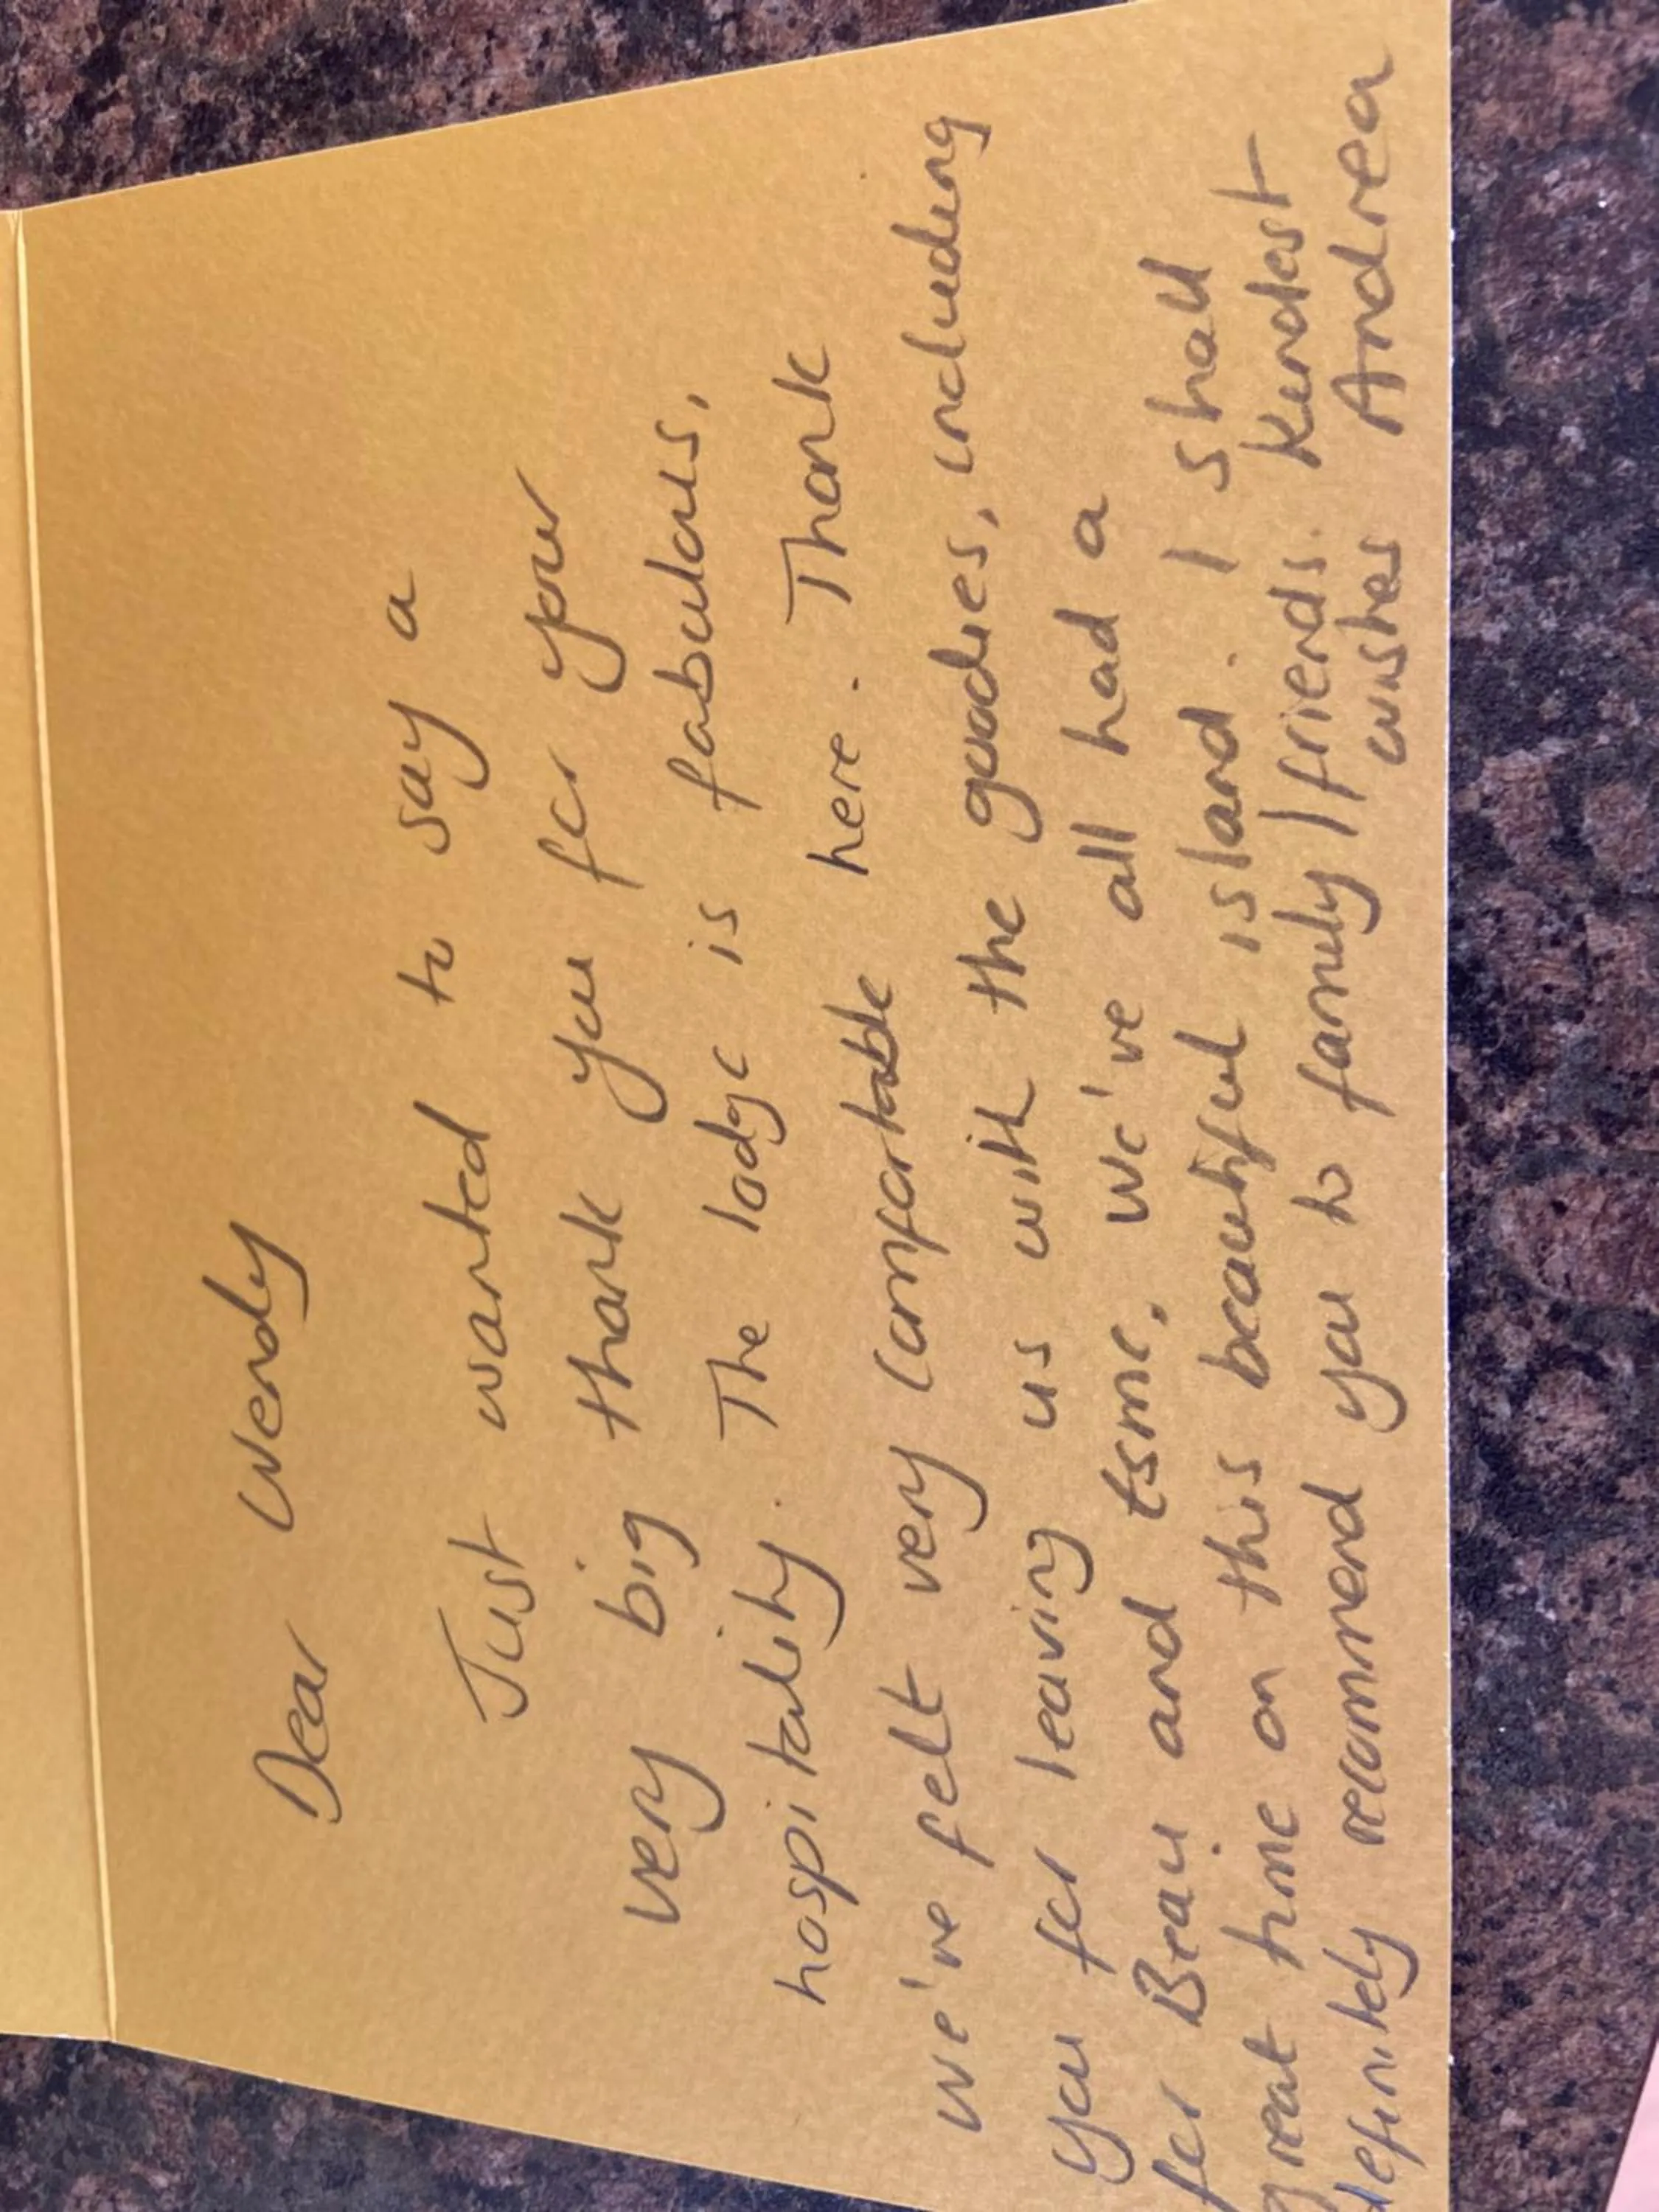 Dear Wendy
Just wanted to say a
very big thank you for your
hospitality. The lodge is fabulous,
we've felt very comfortable here. Thank
you for leaving us with the goodies, including
for Beau and Esme. We've all had a
great time on this beautiful island. I shall
definitely recommend you to family/friends. Kindest
wishes Andrea